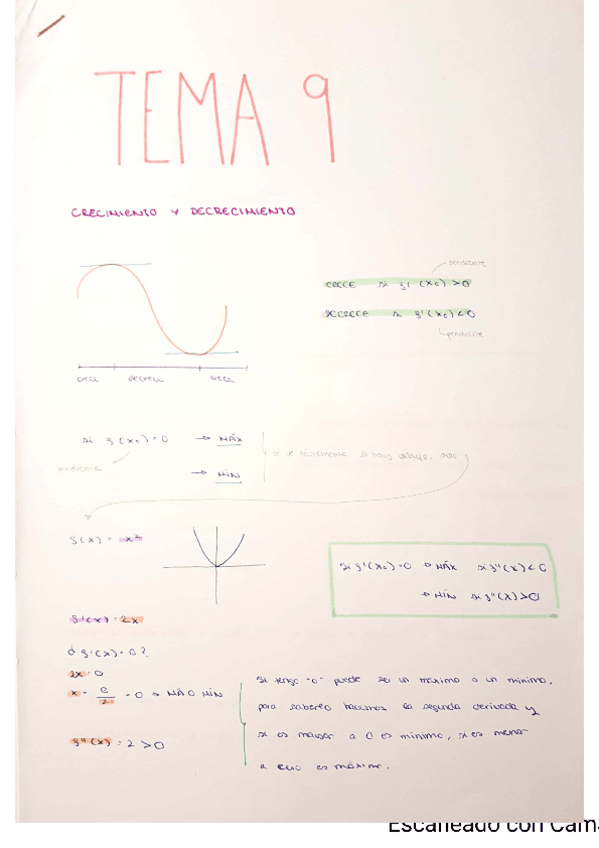 TEMA 9
CRECIMIENTO Y DECRECIMIENTO
pendiente
CRECE si f'(x₀) > 0
DECRECE si f'(x₀) < 0
pendiente
crece decrece crece
si f'(x₀) = 0 → MÁX
→ MÍN
se ve fácilmente si hay dibujo, sino
pendiente
f(x) = x²
Si f'(x₀) = 0 → MÁX si f''(x) < 0
→ MÍN si f''(x) > 0
f'(x) = 2x
¿f'(x) = 0?
2x = 0
x = 0/2 = 0 → MÁX O MÍN
f''(x) = 2 > 0
Si tengo "0" puede ser un máximo o un mínimo,
para saberlo hacemos la segunda derivada y
si es mayor a 0 es mínimo, si es menor
a es máximo.
Escaneado con Cam